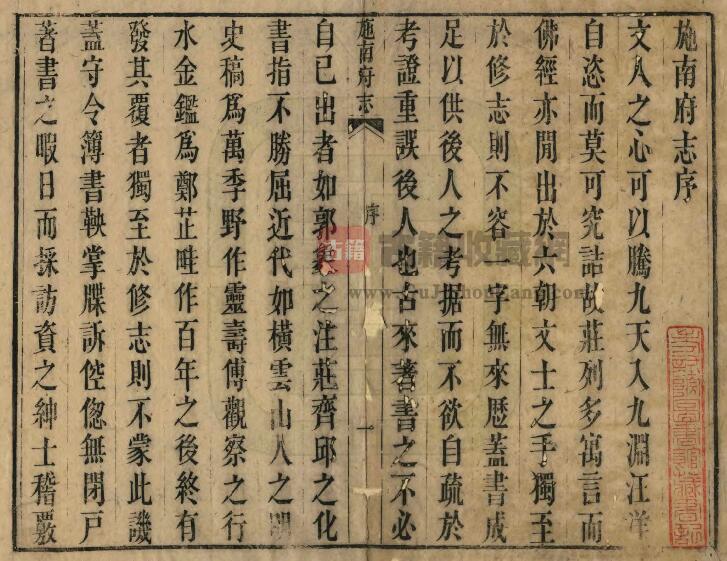 施南府志序
文人之心可以騰九天入九淵汪洋
自恣而莫可究詰故莊列多寓言而
佛經亦閒出於六朝文士之手獨至
於修志則不容一字無來歷蓋書成
足以供後人之考据而不欲自疏於
考證重誤後人也古來著書之不必
施南府志
序
一
自已出者如郭象之注莊齊邱之化
書指不勝屈近代如橫雲山人之明
史稿爲萬季野作靈壽傅觀察之行
水金鑑爲鄭芷畦作百年之後終有
發其覆者獨至於修志則不蒙此譏
蓋守令簿書鞅掌牒訴倥偬無閉戶
著書之暇日而採訪資之紳士稽覈
古籍
古籍收藏網